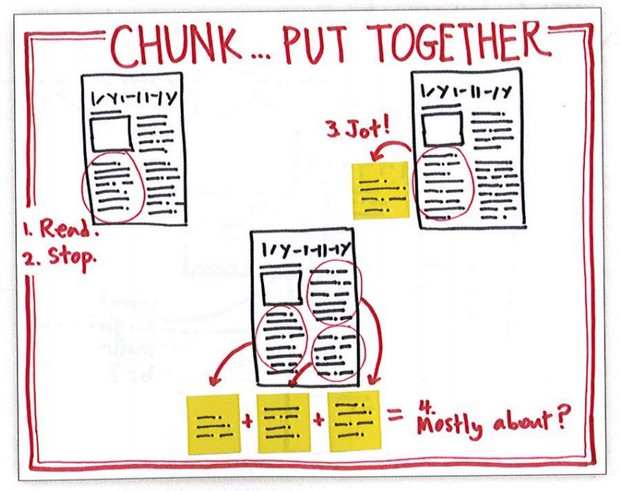 CHUNK... PUT TOGETHER
1. Read.
2. Stop.
3. Jot!
+ + = 4. Mostly about?